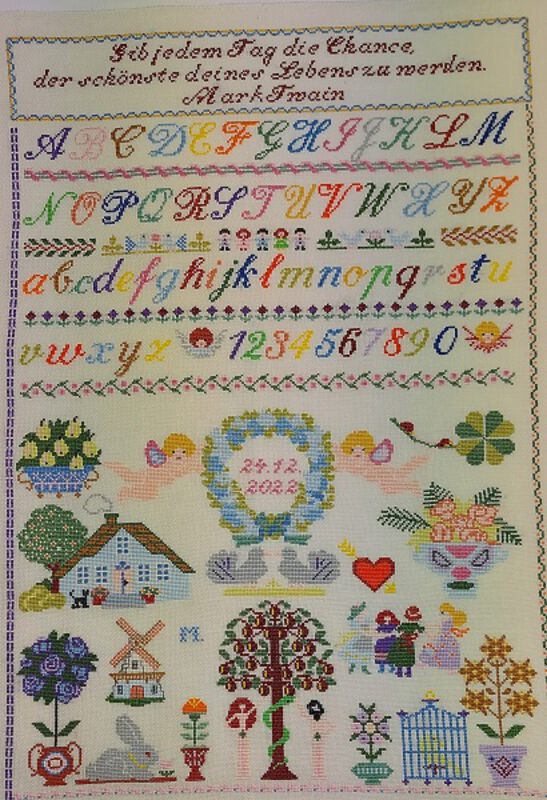 Gib jedem Tag die Chance,
der schönste deines Lebens zu werden.
Mark Twain
A B C D E F G H I J K L M
N O P Q R S T U V W X Y Z
a b c d e f g h i j k l m n o p q r s t u
v w x y z 1 2 3 4 5 6 7 8 9 0
24.12.
2022
M.